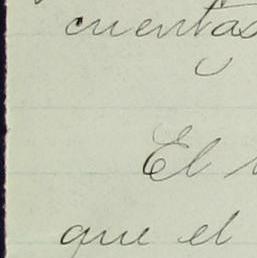 cuentas
El
que el